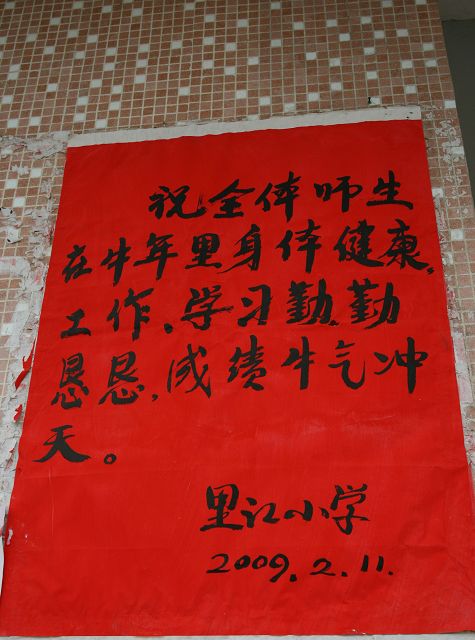 祝全体师生
在牛年里身体健康,
工作、学习勤勤
恳恳,成绩牛气冲
天。
里江小学
2009.2.11.